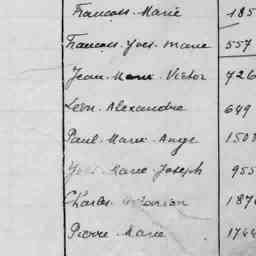 Francois. Marie 185
Francois. Yves. Marie 557
Jean. Marie. Victor 726
Léon. Alexandre 649
Paul. Marie. Ange 1508
Yves. Marie. Joseph 955
Charles. Marion 187
Pierre. Marie 1744